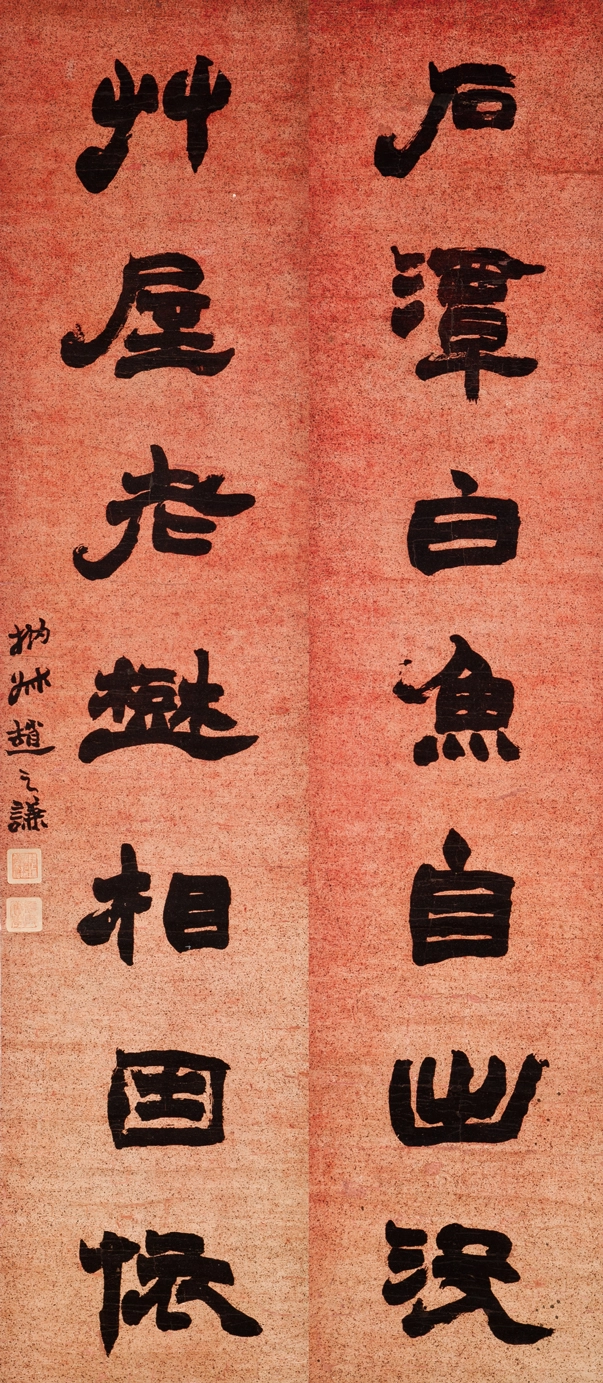 石潭白魚自出沒
艸屋老相因依
撝叔趙之謙